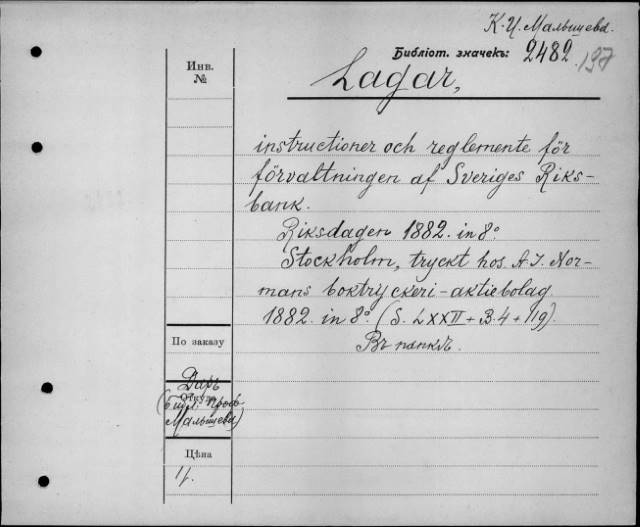 К. И. Малышева.
Библіот. значекъ: 2482. 197
Инв.
№
Lagar,
instructioner och reglemente för
förvaltningen af Sveriges Riks-
bank.
Riksdagen 1882. in 8º
Stockholm, tryckt hos. A. I. Nor-
mans boktryckeri-aktiebolag
1882. in 8º. (S. LXXII + B. 4 + 119).
Въ папкѣ.
По заказу
Откуда
Даръ
(библ. проф.
Малышева)
Цѣна
1 р.